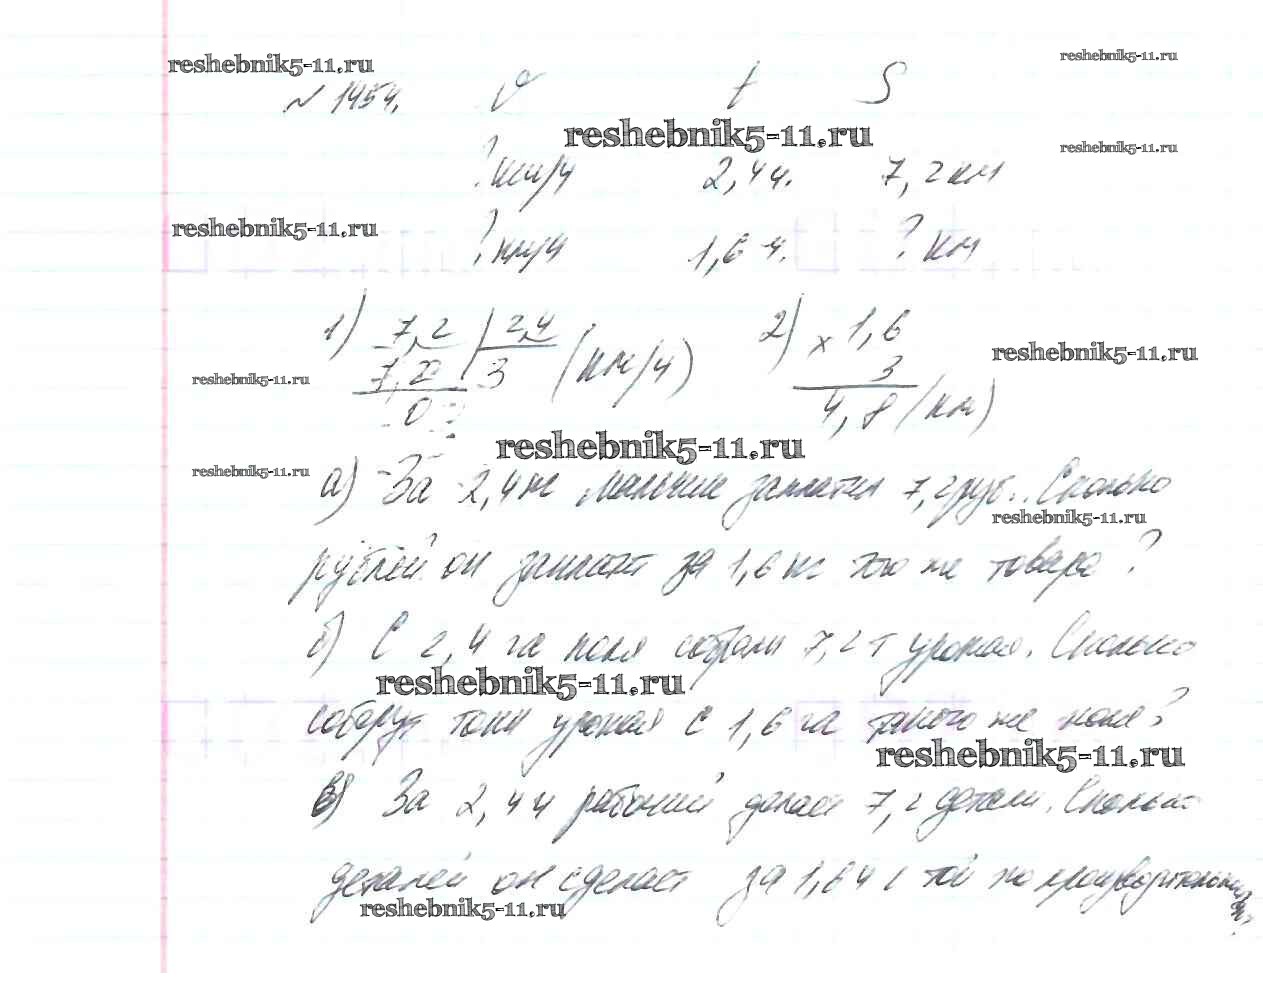 reshebnik5-11.ru
reshebnik5-11.ru
№ 1454. v t S
reshebnik5-11.ru
reshebnik5-11.ru
? км/ч 2,4 ч. 7,2 км
reshebnik5-11.ru
? км/ч 1,6 ч. ? км
1) 7,2 | 2,4 2) × 1,6
reshebnik5-11.ru
7,2 3 (км/ч) 3
reshebnik5-11.ru
0 4,8 (км)
reshebnik5-11.ru
reshebnik5-11.ru
а) За 2,4 кг мальчик заплатил 7,2 руб. Сколько
reshebnik5-11.ru
рублей он заплатит за 1,6 кг того же товара?
б) С 2,4 га поля собрали 7,2 т урожая. Сколько
reshebnik5-11.ru
соберут тонн урожая с 1,6 га такого же поля?
reshebnik5-11.ru
в) За 2,4 ч рабочий делает 7,2 детали. Сколько
деталей он сделает за 1,6 ч с той же
reshebnik5-11.ru